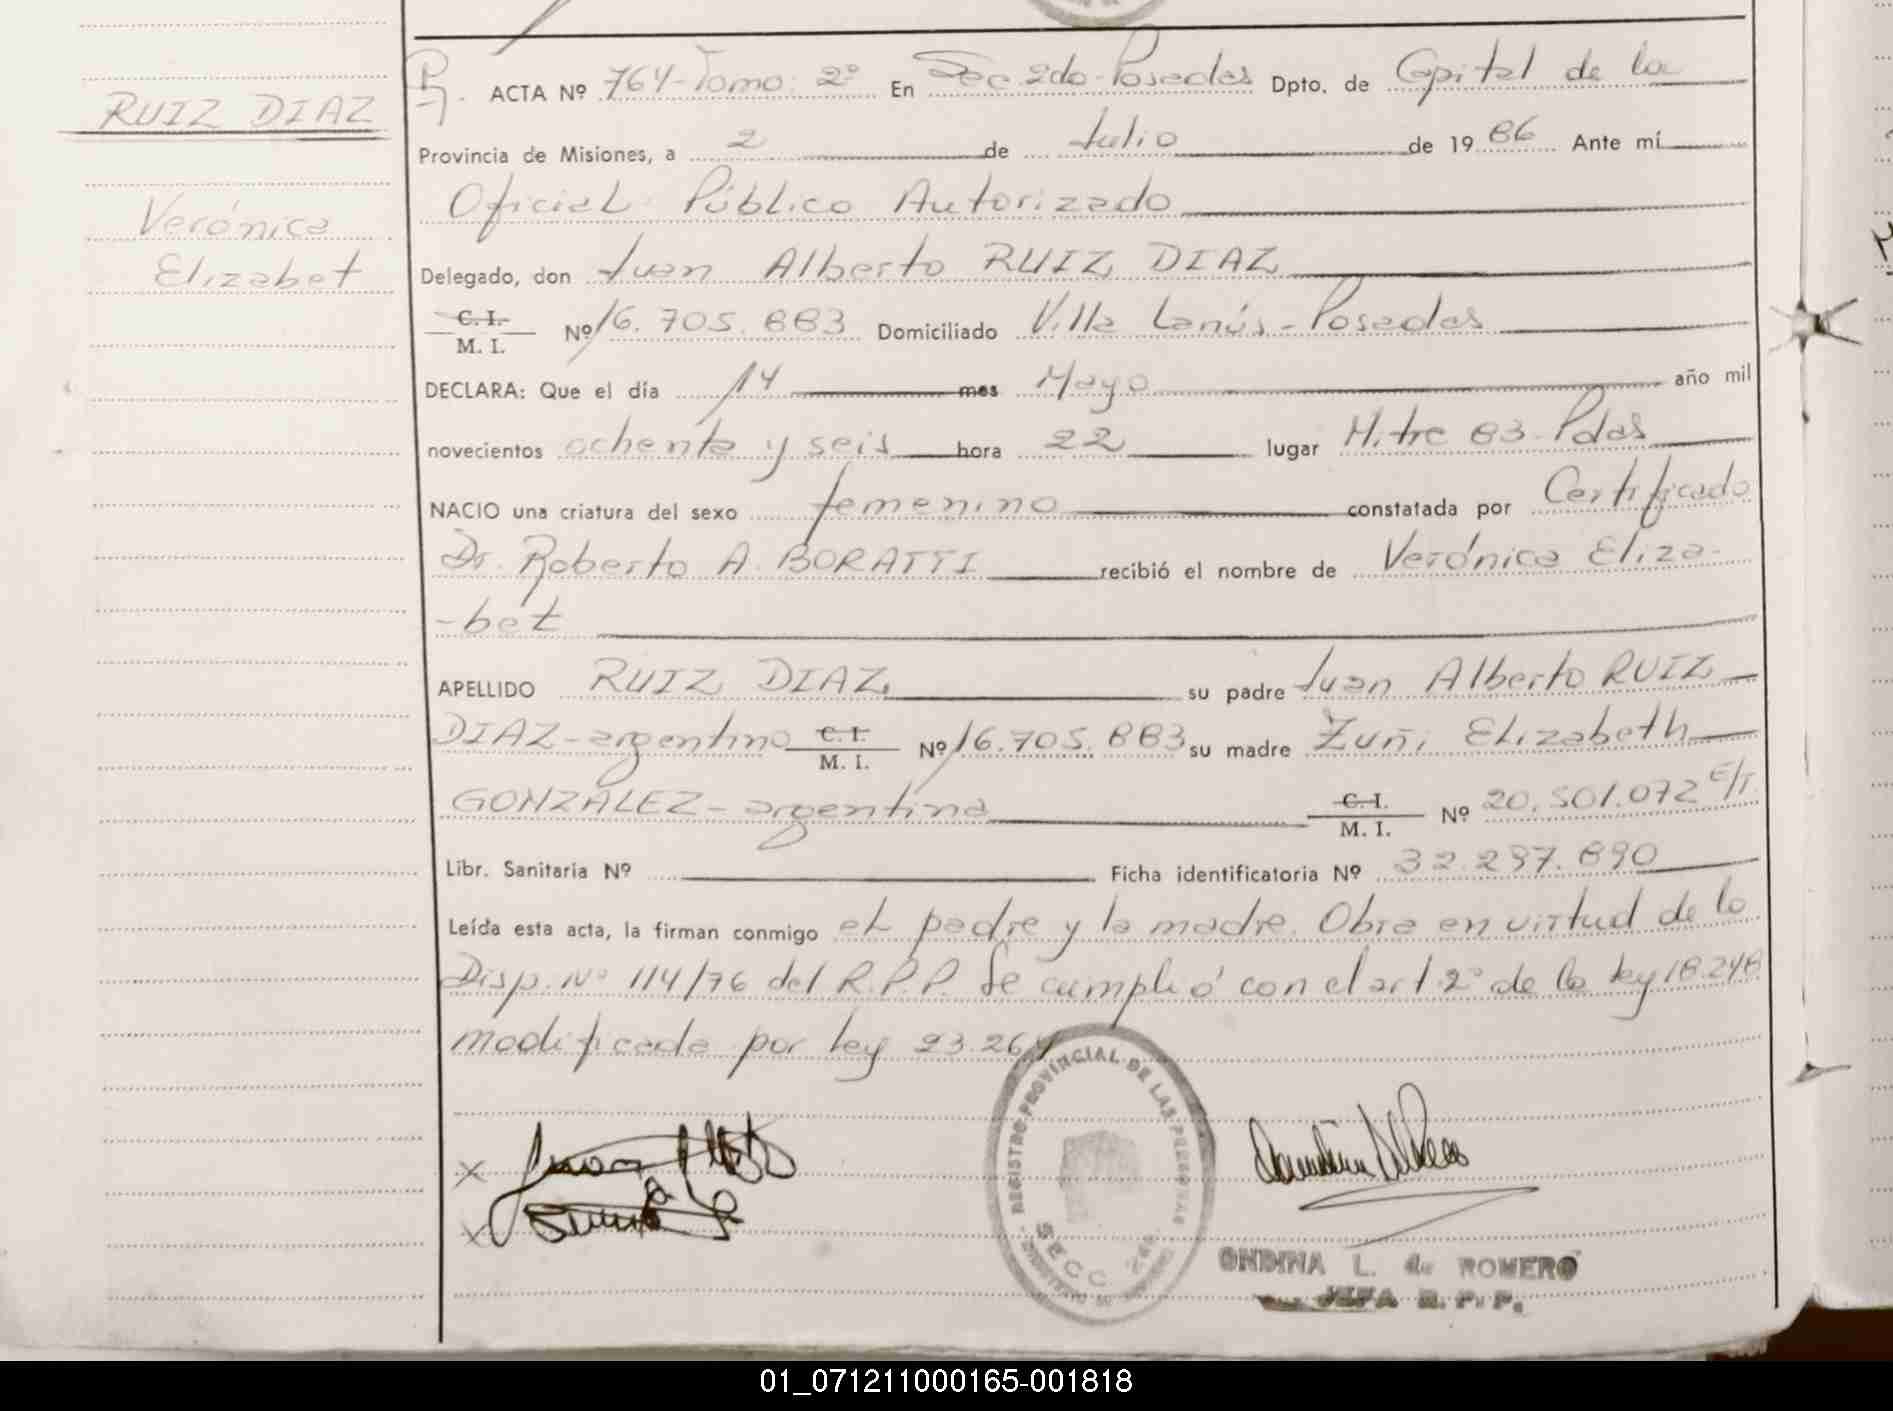 RUIZ DIAZ
Verónica
Elizabet
ACTA Nº 764-Tomo: 2º En Sec 2do-Posadas Dpto. de Capital de la
Provincia de Misiones, a 2 de Julio de 19 86 Ante mí
Oficial Público Autorizado
Delegado, don Juan Alberto RUIZ DIAZ
C. I.
M. I. Nº 16.705.883 Domiciliado Villa Lanús-Posadas
DECLARA: Que el día 14 mes Mayo año mil
novecientos ochenta y seis hora 22 lugar Mitre 83-Pdas
NACIO una criatura del sexo femenino constatada por Certificado
Dr. Roberto A. BORATTI recibió el nombre de Verónica Eliza-
-bet
APELLIDO RUIZ DIAZ su padre Juan Alberto RUIZ
DIAZ-argentino C. I. M. I. Nº 16.705.883 su madre Zuñi Elizabeth
GONZALEZ-argentina C. I. M. I. Nº 20.501.072 E/T.
Libr. Sanitaria Nº Ficha identificatoria Nº 32.297.890
Leída esta acta, la firman conmigo el padre y la madre. Obra en virtud de la
Disp. Nº 114/76 del R.P.P. Se cumplió con el art. 2º de la ley 18.248
modificada por ley 23.264
REGISTRO PROVINCIAL DE LAS PERSONAS
SECC. 2da.
ONDINA L. de ROMERO
JEFA R. P. P.
01_071211000165-001818